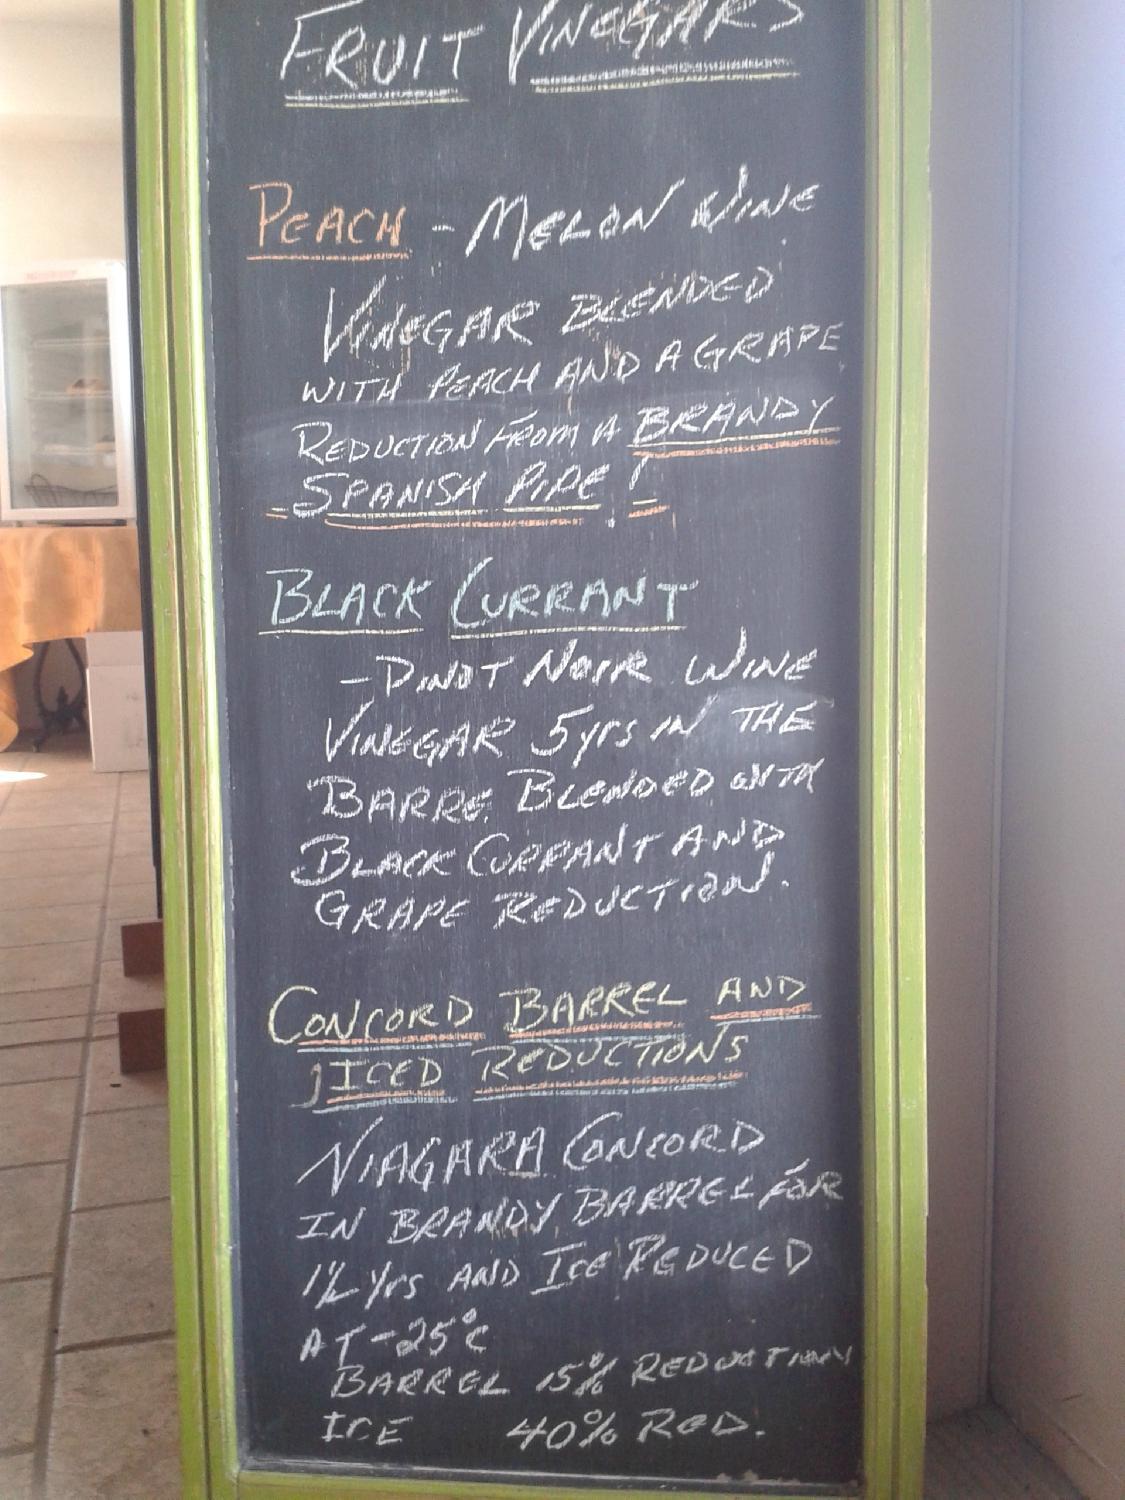 FRUIT VINEGARS
PEACH - MELON WINE
VINEGAR BLENDED
WITH PEACH AND A GRAPE
REDUCTION FROM A BRANDY
SPANISH PIPE!
BLACK CURRANT
- PINOT NOIR WINE
VINEGAR 5yrs IN THE
BARREL BLENDED WITH
BLACK CURRANT AND
GRAPE REDUCTION.
CONCORD BARREL AND
ICED REDUCTIONS
NIAGARA CONCORD
IN BRANDY BARREL FOR
1½ Yrs AND ICE REDUCED
AT -25°C
BARREL 15% REDUCTION
ICE 40% RED.